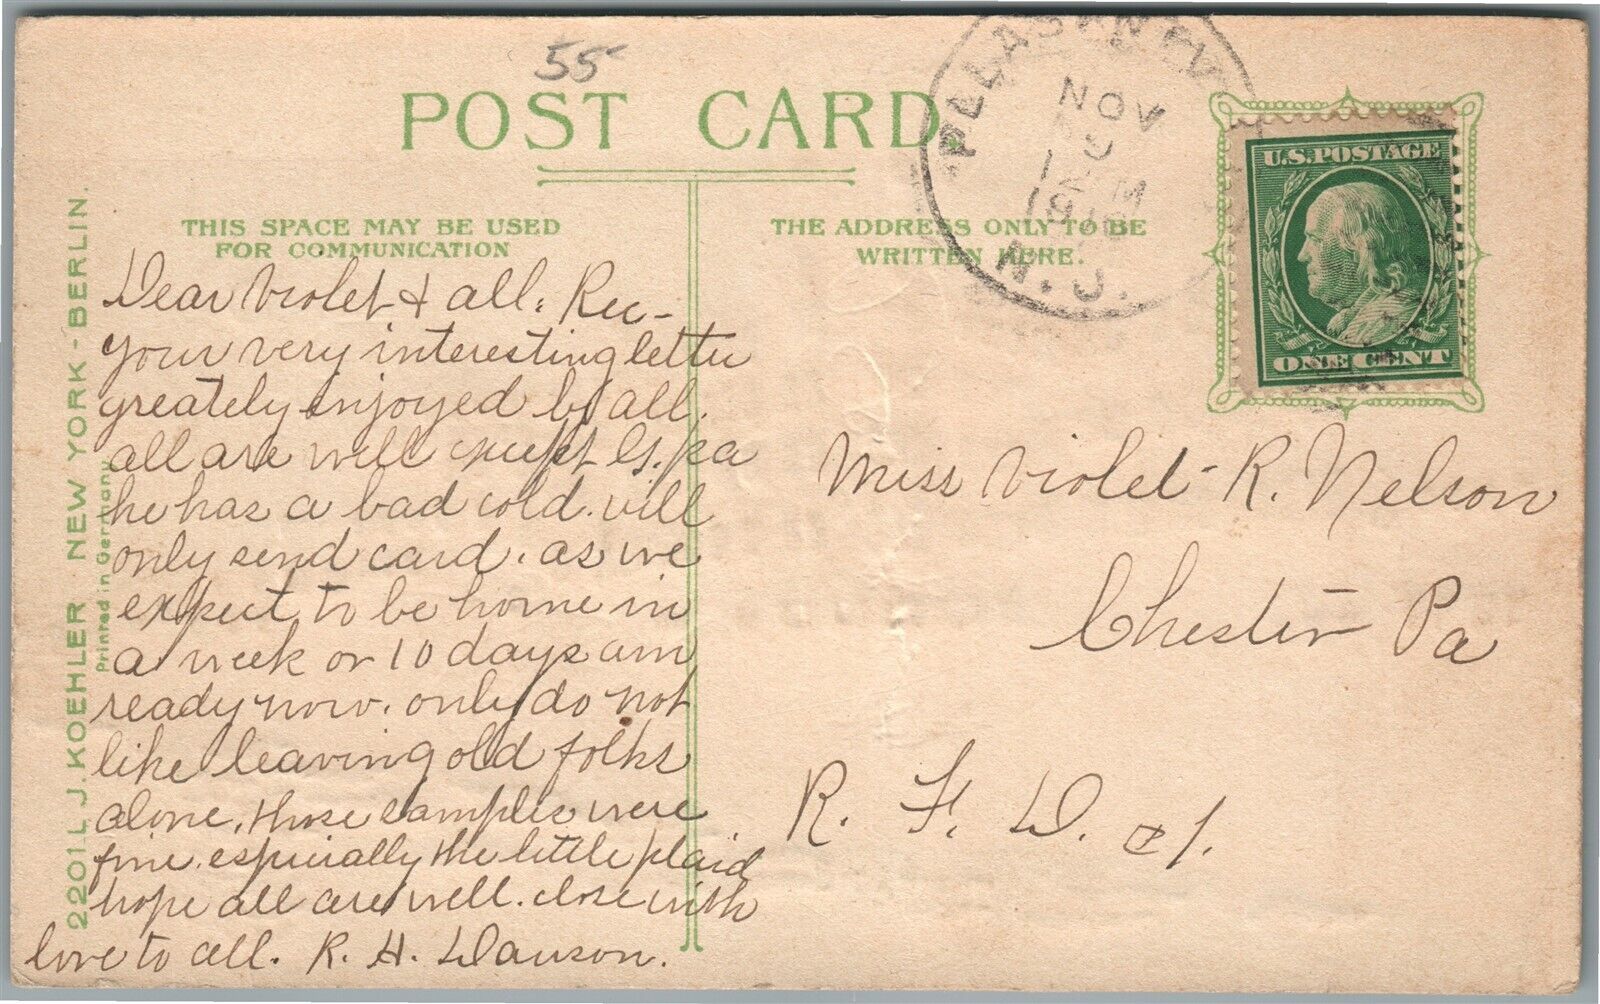 55
POST CARD.
PLEASANTVILLE
NOV
M
N. J.
U.S. POSTAGE
ONE CENT
THIS SPACE MAY BE USED
FOR COMMUNICATION
THE ADDRESS ONLY TO BE
WRITTEN HERE.
2201 L J. KOEHLER NEW YORK - BERLIN.
Printed in Germany
Dear Violet & all: Rec-
your very interesting letter
greately enjoyed by all.
all are well except G.pa
he has a bad cold. will
only send card. as we
expect to be home in
a week or 10 days am
ready now. only do not
like leaving old folks
alone, those samples were
fine. especially the little plaid
hope all are well. close with
love to all. R. H. Dawson.
Miss Violet R. Nelson
Chester Pa
R. F. D. #1.